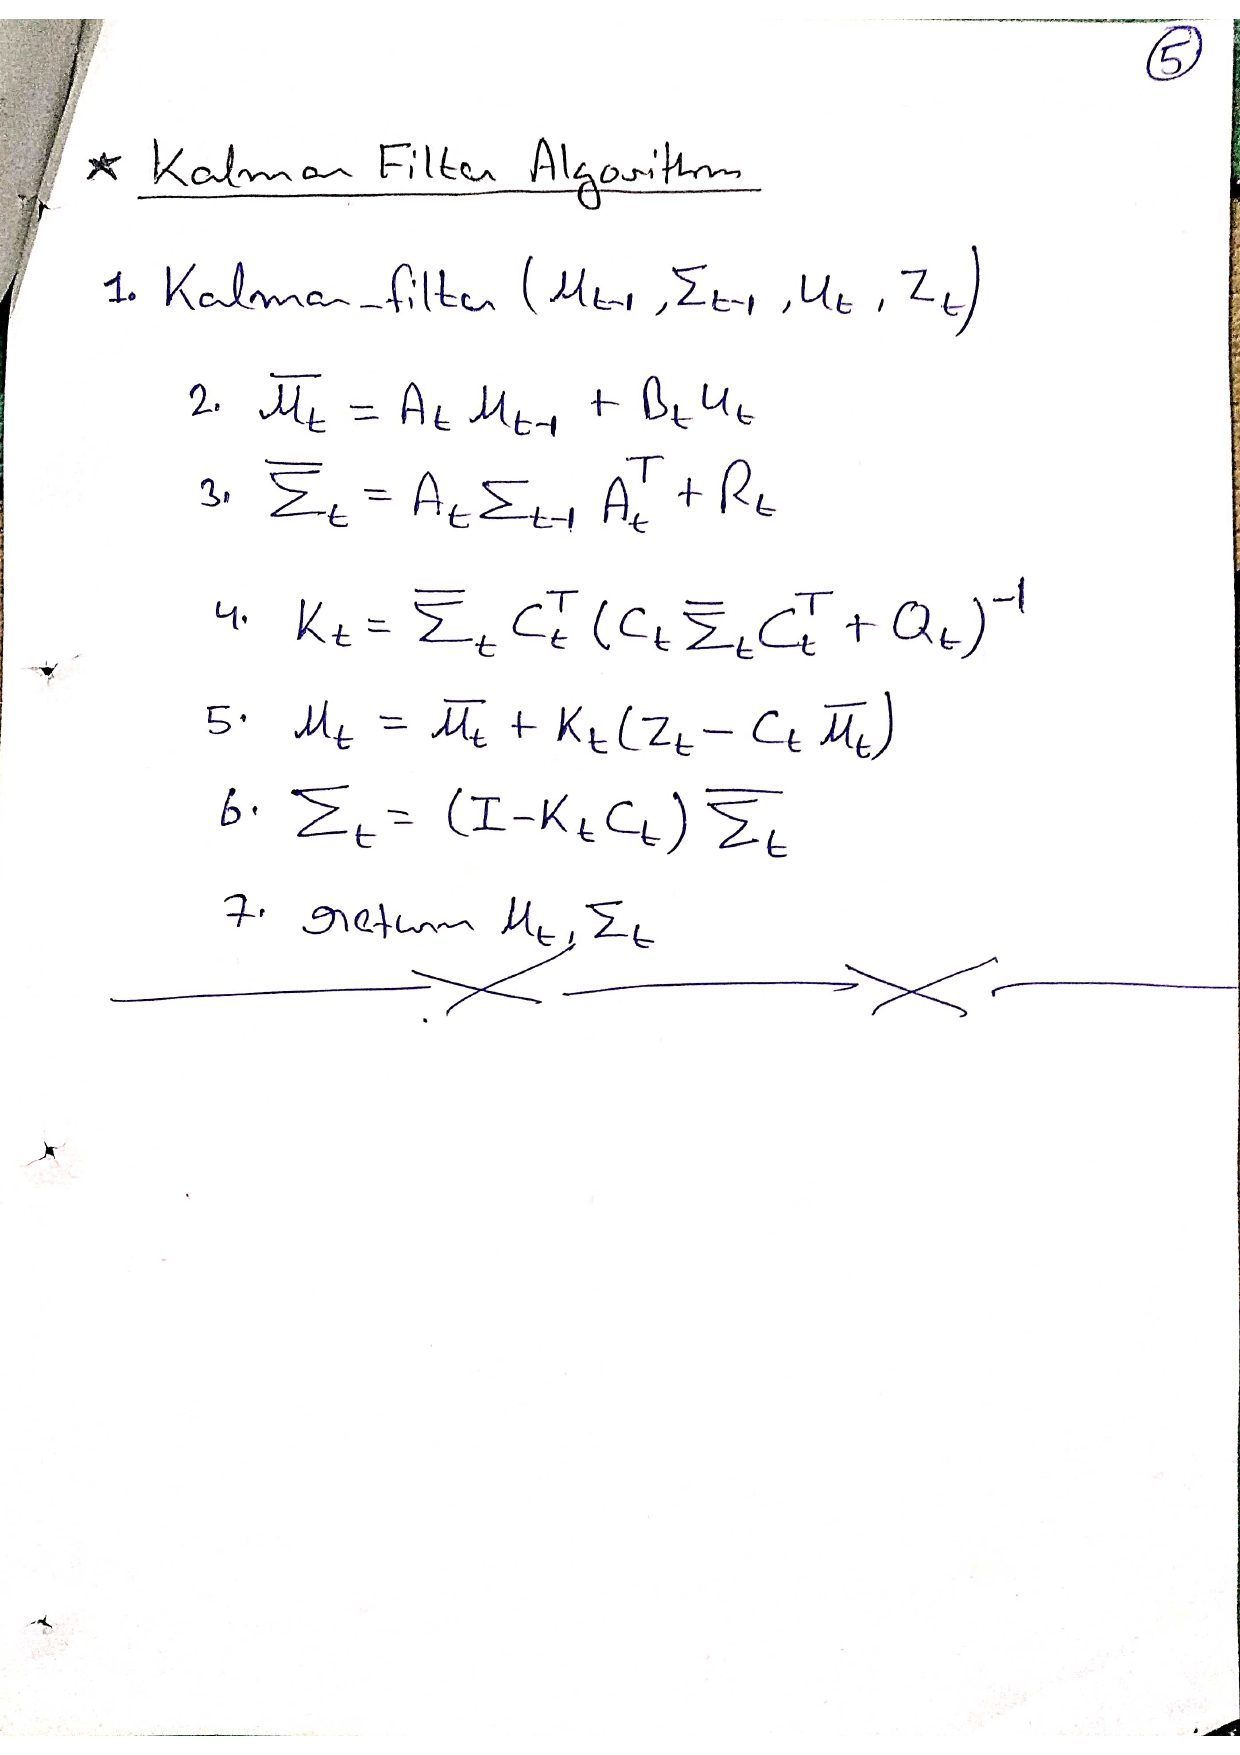 5
* Kalman Filter Algorithm
1. Kalman_filter (μ_{t-1}, Σ_{t-1}, u_t, z_t)
2. μ̄_t = A_t μ_{t-1} + B_t u_t
3. Σ̄_t = A_t Σ_{t-1} A_t^T + R_t
4. K_t = Σ̄_t C_t^T (C_t Σ̄_t C_t^T + Q_t)^{-1}
5. μ_t = μ̄_t + K_t (z_t - C_t μ̄_t)
6. Σ_t = (I - K_t C_t) Σ̄_t
7. return μ_t, Σ_t